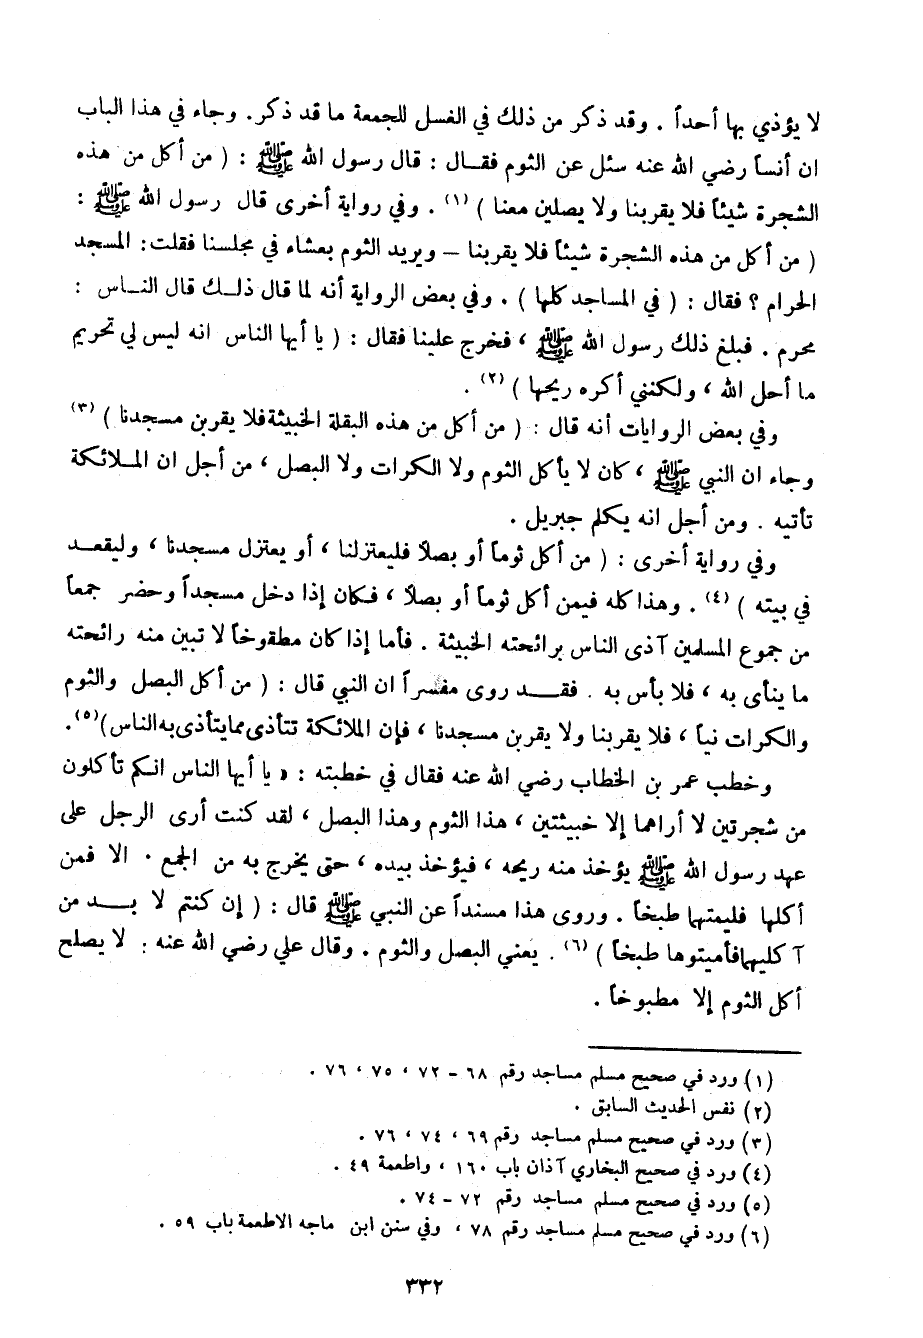 لا يؤذي بها أحداً . وقد ذكر من ذلك في الغسل للجمعة ما قد ذكر. وجاء في هذا الباب
ان أنساً رضي الله عنه سئل عن الثوم فقال : قال رسول الله ﷺ : ( من أكل من هذه
الشجرة شيئاً فلا يقربنا ولا يصلين معنا ) (١) . وفي رواية أخرى قال رسول الله ﷺ :
( من أكل من هذه الشجرة شيئاً فلا يقربنا – ويريد الثوم بعشاء في مجلسنا فقلت: المسجد
الحرام ؟ فقال : ( في المساجد كلها ) . وفي بعض الرواية أنه لما قال ذلك قال الناس :
محرم . فبلغ ذلك رسول الله ﷺ ، فخرج علينا فقال : ( يا أيها الناس انه ليس لي تحريم
ما أحل الله ، ولكنني أكره ريحها ) (٢) .
وفي بعض الروايات أنه قال : ( من أكل من هذه البقلة الخبيثة فلا يقربن مسجدنا ) (٣)
وجاء ان النبي ﷺ ، كان لا يأكل الثوم ولا الكرات ولا البصل ، من أجل ان الملائكة
تأتيه . ومن أجل انه يكلم جبريل .
وفي رواية أخرى : ( من أكل ثوماً أو بصلاً فليعتزلنا ، أو يعتزل مسجدنا ، وليقعد
في بيته ) (٤) . وهذا كله فيمن أكل ثوماً أو بصلاً ، فكان إذا دخل مسجداً وحضر جمعاً
من جموع المسلمين آذى الناس برائحته الخبيثة . فأما إذا كان مطقوخاً لا تبين منه رائحته
ما ينأى به ، فلا بأس به . فقد روى مفسراً ان النبي قال : ( من أكل البصل والثوم
والكرات نيأ ، فلا يقربنا ولا يقربن مسجدنا ، فإن الملائكة تتأذى مما يتأذى به الناس)(٥).
وخطب عمر بن الخطاب رضي الله عنه فقال في خطبته : « يا أيها الناس انكم تأكلون
من شجرتين لا أراهما إلا خبيثتين ، هذا الثوم وهذا البصل ، لقد كنت أرى الرجل على
عهد رسول الله ﷺ يؤخذ منه ريحه ، فيؤخذ بيده ، حتى يخرج به من الجمع . الا فمن
أكلها فليمتها طبخاً . وروى هذا مسنداً عن النبي ﷺ قال : ( إن كنتم لا بد من
آكليها فأميتوها طبخاً ) (٦) . يعني البصل والثوم . وقال علي رضي الله عنه : لا يصلح
أكل الثوم إلا مطبوخاً .
(١) ورد في صحيح مسلم مساجد رقم ٦٨ – ٧٢ ، ٧٥ ، ٧٦ .
(٢) نفس الحديث السابق .
(٣) ورد في صحيح مسلم مساجد رقم ٦٩ ، ٧٤ ، ٧٦ .
(٤) ورد في صحيح البخاري آذان باب ١٦٠ ، واطعمة ٤٩ .
(٥) ورد في صحيح مسلم مساجد رقم ٧٢ – ٧٤ .
(٦) ورد في صحيح مسلم مساجد رقم ٧٨ ، وفي سنن ابن ماجه الاطعمة باب ٥٩ .
٣٣٢